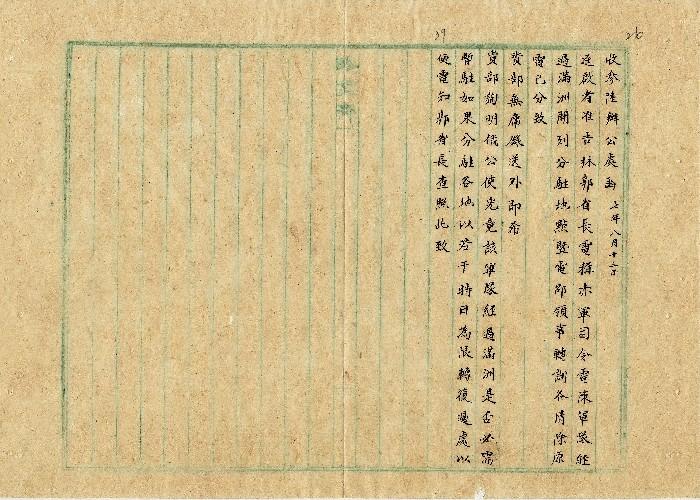 收參陸辦公處函 七年八月廿三日
逕啟者准吉林郭省長電稱赤軍司令電陳軍隊經
過滿洲開列分駐地點暨電鄒領事轉詢各情除原
電已分致
貴部無庸錄送外即希
貴部詢明俄公使究竟該軍隊經過滿洲是否必需
暫駐如果分駐各地以若干時日為限轉復過處以
便電知郭省長查照此致
29
26